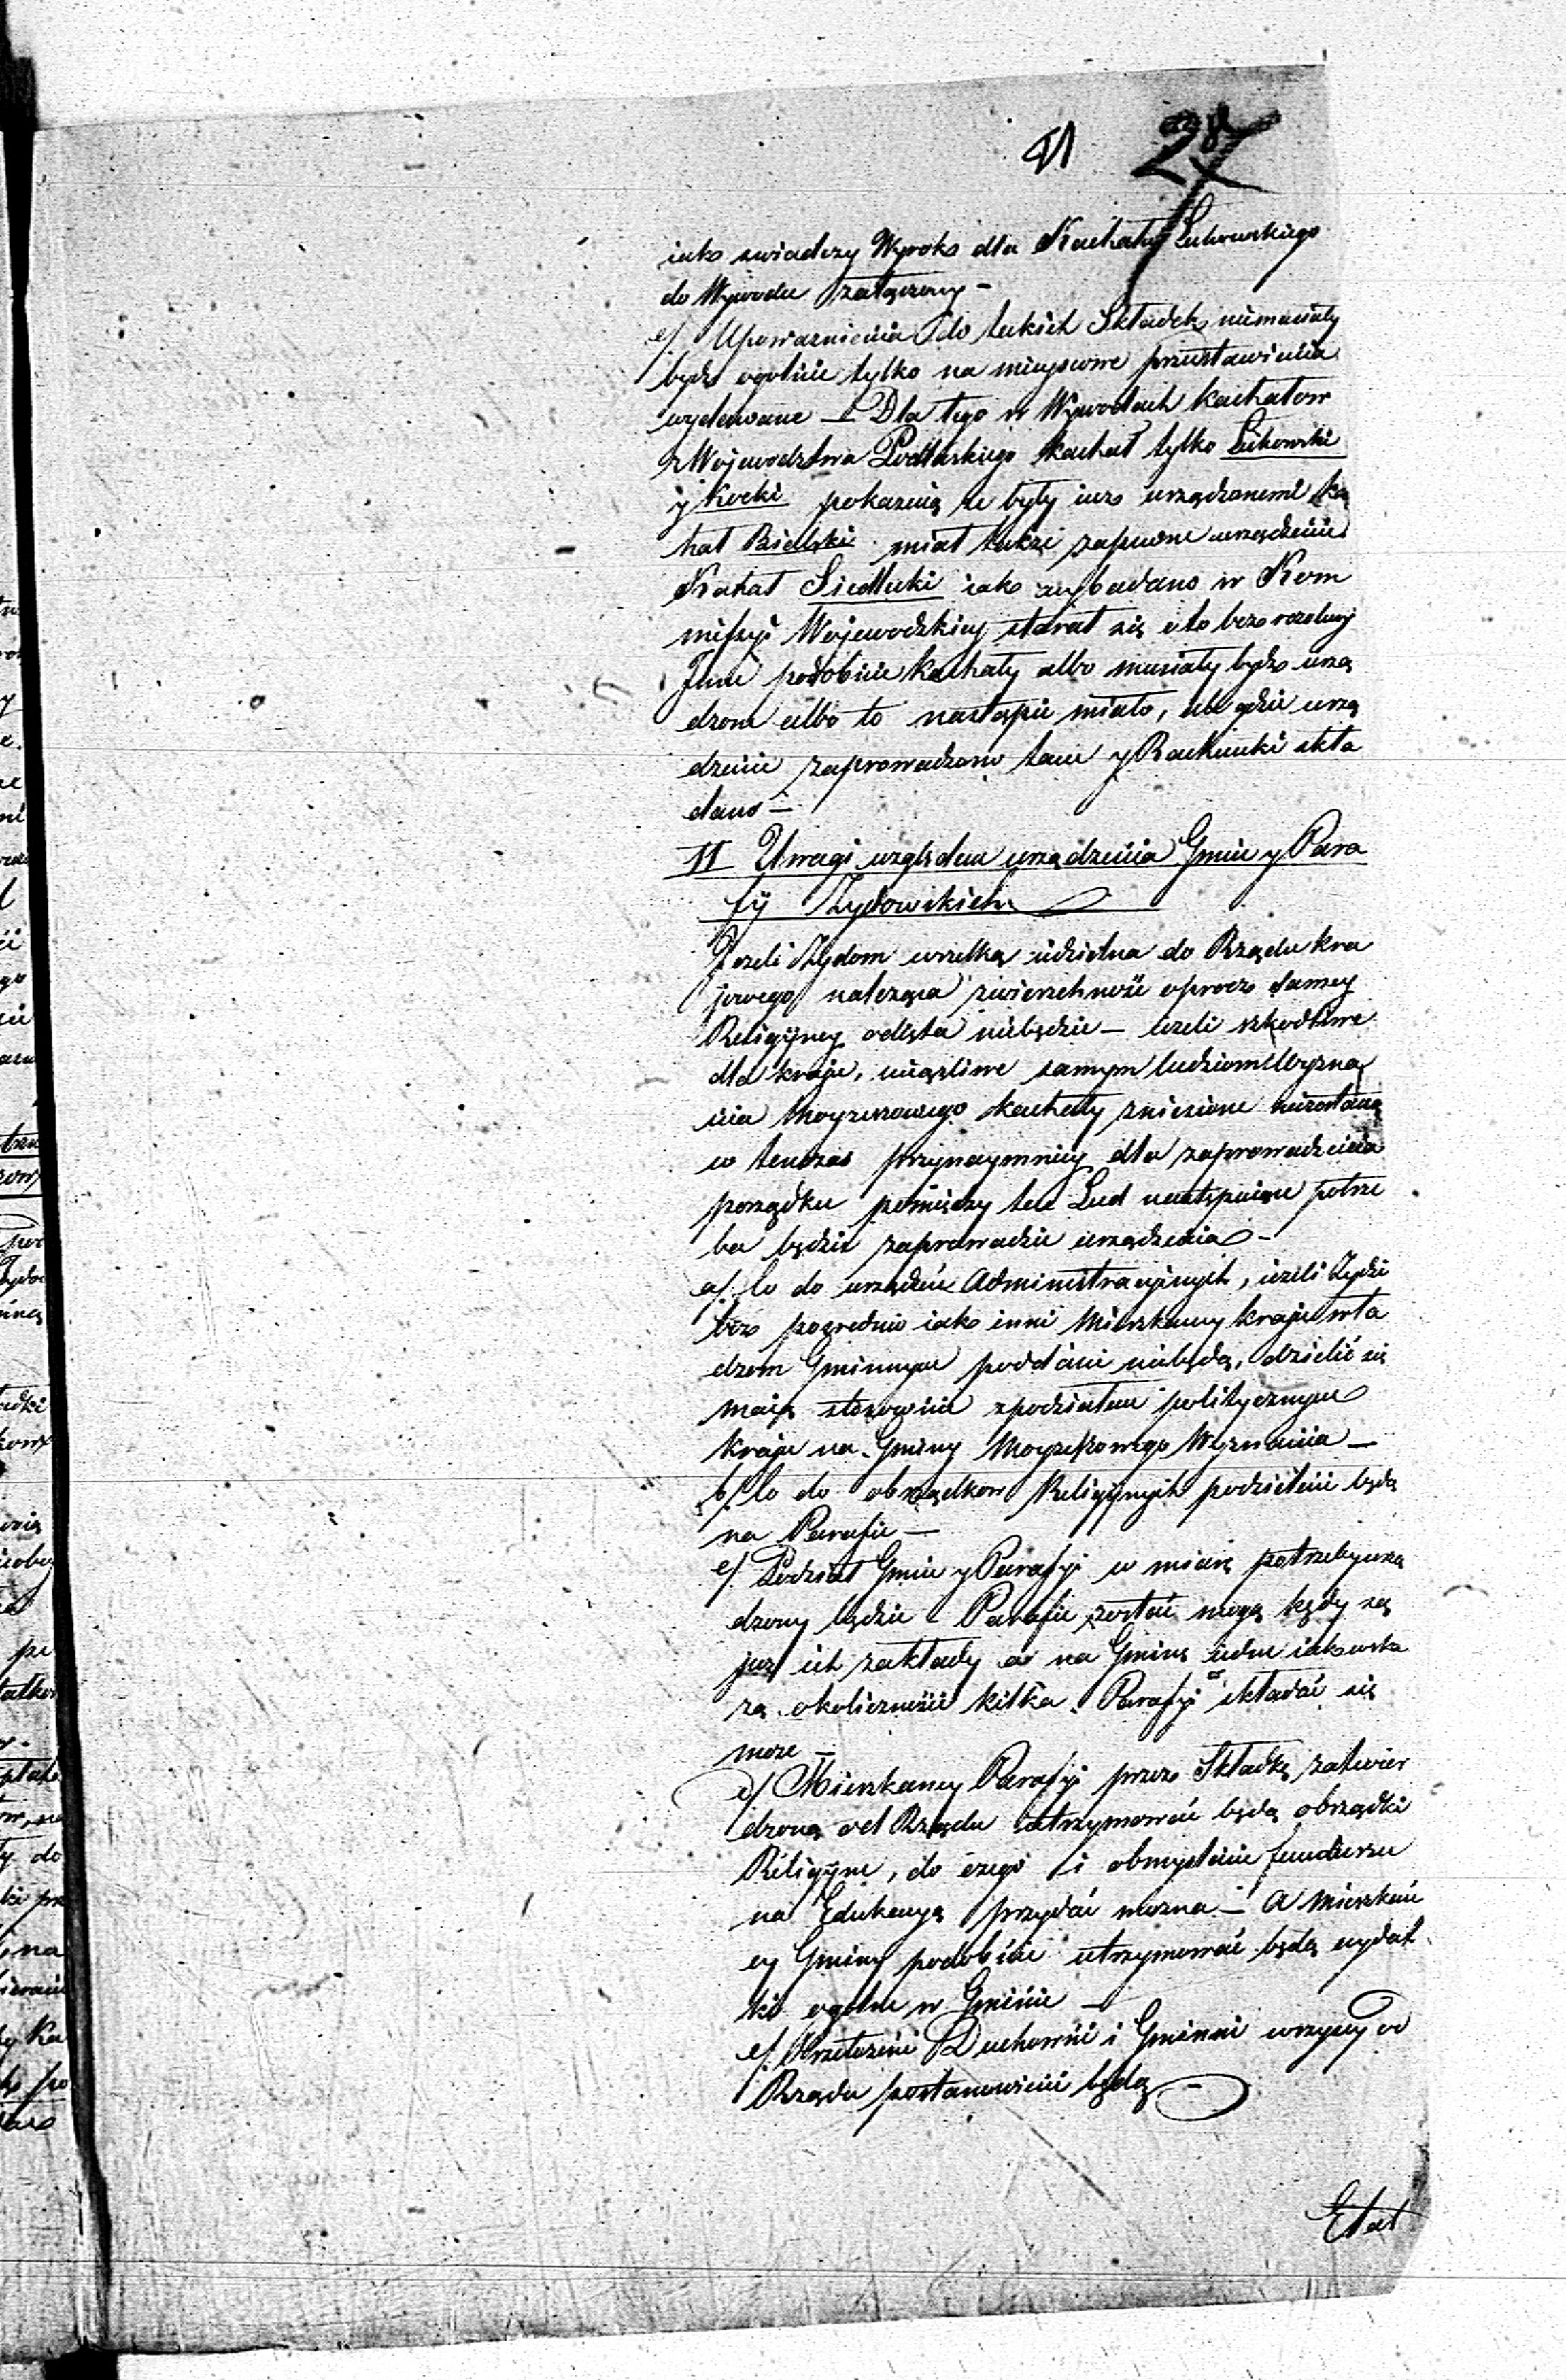 iako swiadczy Wyrok dla Kachału Łukowskiego
do Wywodu załączony —
e/ Upowaznienia do takich Składek niemiały
bydz ogolnie tylko na mieyscowe przestawienia
wydawane — Dla tego w Wywodach kachałow
z Wojewodztwa Podlaskiego kachał tylko Łukowski
y Kocki pokazuią ze były iuz urządzonemi ka
hał Bielski miał także zapewne urządzenie
Kahał Siedlecki iako wybadano w Kom
mifsyi Wojewodzkiey starał się o to bez rezolucyi
Inne podobnie kachały albo musiały bydz urzą
dzone albo to nastąpić miało, ale gdzie urzą
dzenie zaprowadzono tam y Rachunki skła
dano —
11 Uwagi względem urządzenia Gmin y Para
fij Zydowskich
Jezeli Zydom wszelka udzielna do Rządu kra
jowego należąca zwierzchność oprocz samey
Religijney odięta niebędzie — iezeli szkodliwe
dla kraju, uciążliwe samym ludziom Wyzna
nia Moyzeszowego kachały zniesione niezostaną
w tenczas przynaymniey dla zaprowadzenia
porządku pomiędzy ten Lud następuiące potrze
ba będzie zaprowadzić urządzenia —
a/ Co do urządzeń Administracyinych, iezeli Zydzi
bez posrednio iako inni Mieszkancy kraju wła
dzom Gminnym poddani niebędą, dzielić się
maią stosownie z podziałem politycznym
kraju na Gminy Moyzeszowego Wyznania —
b/ Co do obrządkow Religijnych podzieleni będą
na Parafie —
c/ Podział Gmin y Parafyi w miarę potrzeby urzą
dzony będzie — Parafie zostać mogą kędy są
juz ich zakłady a na Gminę iedne iak wska
zą okoliczności kilka Parafyi składać się
moze —
d/ Mieszkancy Parafyi przez Składkę zatwier
dzoną od Rządu utrzymować będą obrządki
Religijne, do czego i obmyslenie funduszu
na Edukacyą przydać mozna — A Mieszkań
cy Gminy podobnie utrzymować będą wydat
ki ogolne w Gminie —
e/ Przełozeni Duchowni i Gminni wszyscy od
Rządu postanowieni będą —
Etat